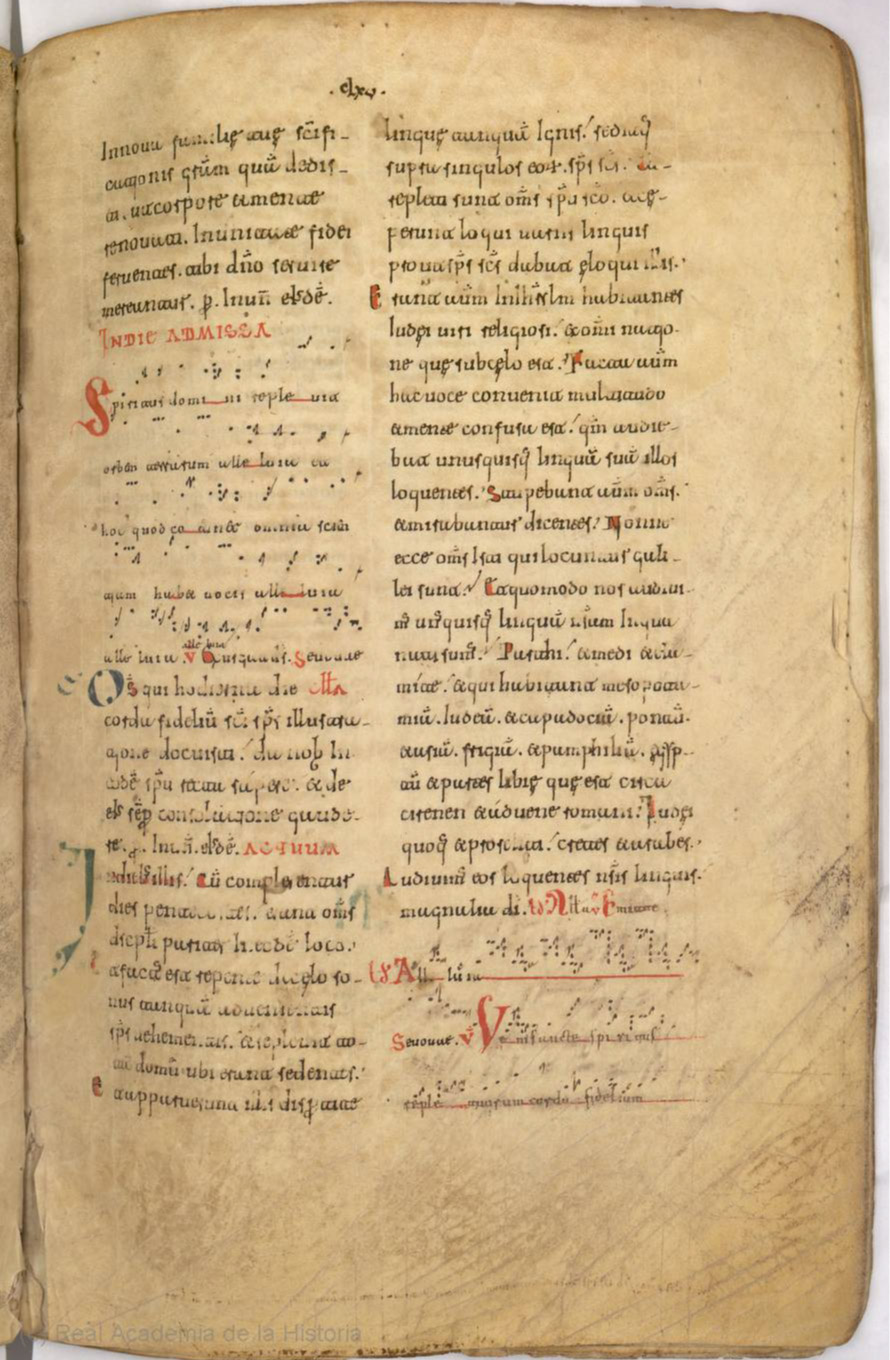 . clxv .
Innova familię tuę scīfi-
cationis grām quā dedis-
ti. ut corpore et mente
renovati. In unitate fidei
ferventes. tibi dn̄o servire
mereantur. ꝑ. In un̄. eiusdē.
IN DIE AD MISSA
Spiritus domini replevit
orbem terrarum alleluia et
hoc quod continet omnia scien
tiam habet vocis alleluia
alle luia V Exurgat ds. Seuouae
Ds̄ qui hodierna die Cłła
corda fideliū sc̄i sp̄s illustra-
tione docuisti. da nob In
eodē sp̄u recta sapere. et de
eius sēp consolatione gaude-
re. ꝑ. In un̄. eiusdē. ACTUUM
In dieb; illis. Cū complerentur
dies pentecostes. erant om̄s
discipłi pariter In eodē loco.
et factus est repente de cęlo so-
nus tanquā advenientis
sp̄s vehementis. et replevit to-
tā domū ubi erant sedentes.
Et apparuerunt illis dispertitę
linguę tanquā Ignis. seditq̄
supra singulos eoꝝ. sp̄s sc̄s. Et
repleti sunt om̄s sp̄u sc̄o. et cę-
perunt loqui variis linguis
prout sp̄s sc̄s dabat eloqui illis.
Erant autm̄ In iħrlm habitantes
Iudei viri religiosi. ex omi natio-
ne quę sub cęlo est. Facta autm̄
hac voce convenit multitudo
et mente confusa est. qm̄ audie-
bat unusquisq̄ linguā suā illos
loquentes. Stupebant autm̄ om̄s.
et mirabantur dicentes. Nonne
ecce om̄s Isti qui locuntur gali-
lei sunt. Et quomodo nos audivi-
m; un;quisq̄ linguā nr̄am In qua
nati sum;. Parthi. et medi et ela-
mitae. et qui habitant mesopota-
miā. Iudeā. et capadociā. pontū.
et asiā. frigiā. et pamphiliā. egyp-
tū et partes libię quę est circa
cirenen et advene romani. Iudei
quoq̄ et proseliti. cretes et arabes.
Audivim; eos loquentes nr̄is linguis.
magnalia dī. Alla V Emitte.
Alleluia
Seuouae. V Veni sancte spiritus
reple tuorum corda fidelium
Real Academia de la Historia